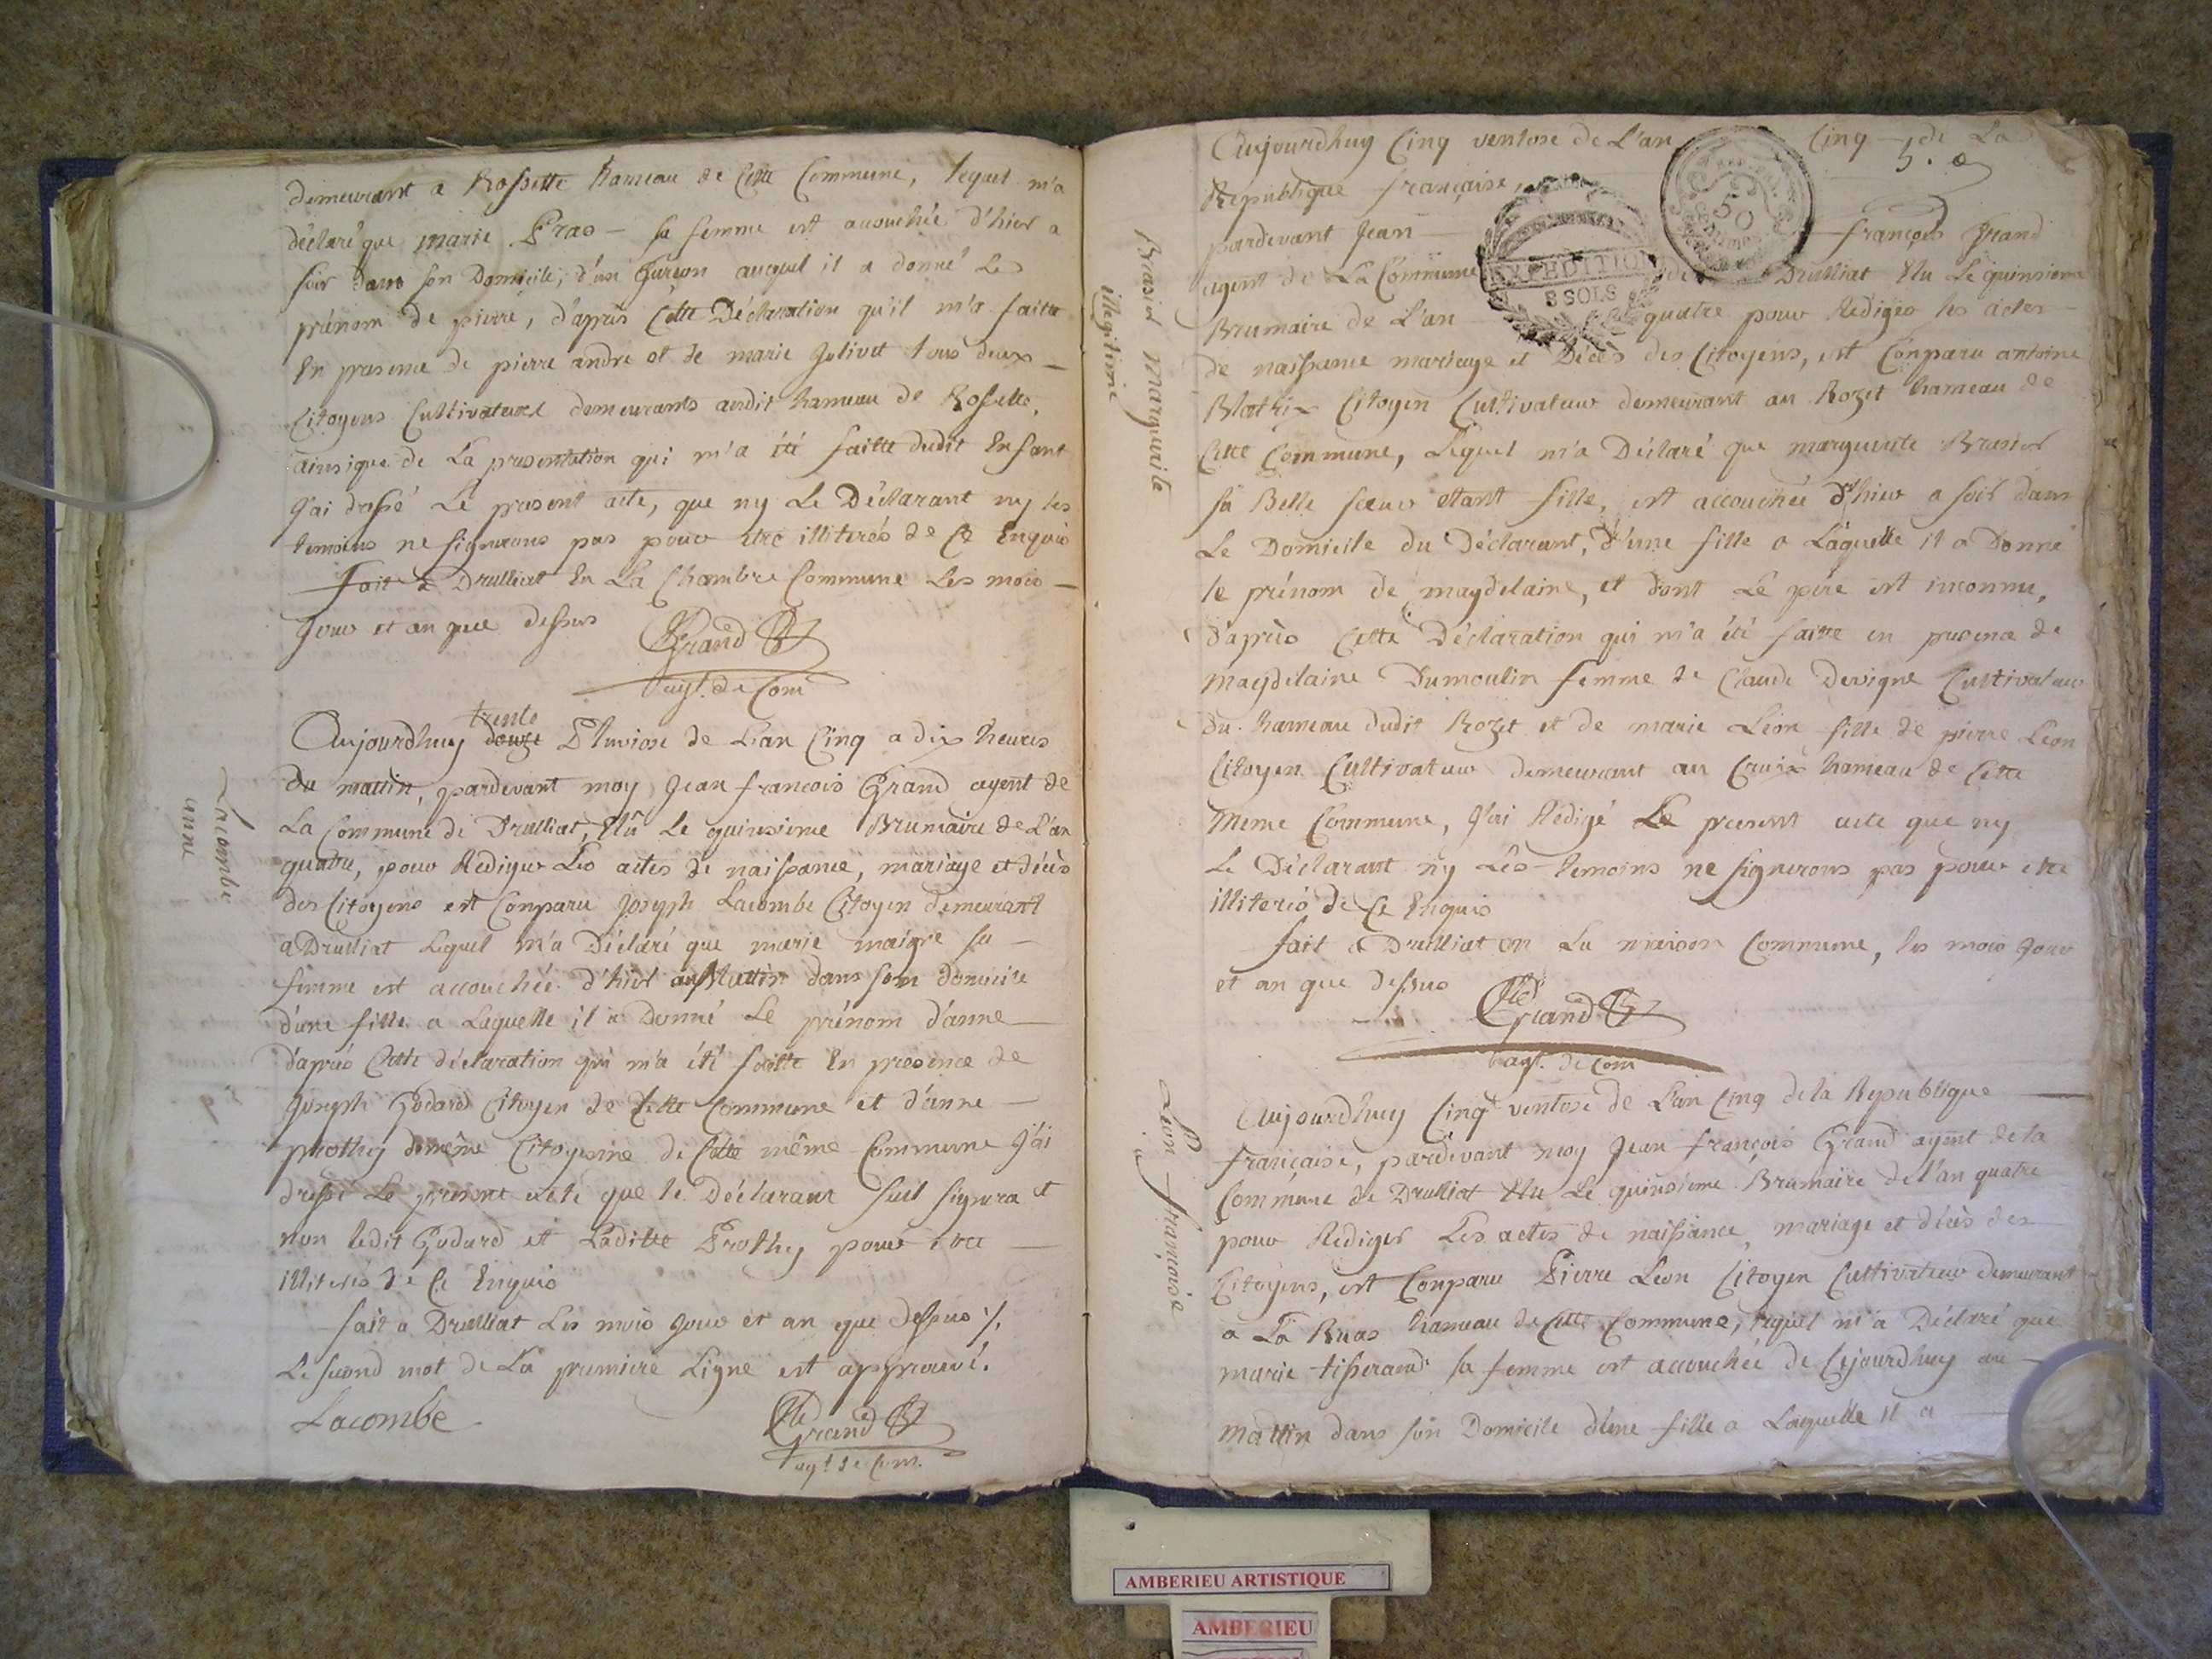 demeurant a Rossette hameau de Cette Commune, lequel m'a
déclaré que marie Pras — sa femme est acouchée d'hier a
soir dans son Domicile, d'un Garçon auquel il a donné Le
prénom de pierre, d'apres Cette Déclaration qu'il m'a faitte
En presence de pierre andre et de marie Jolivet tous deux —
Citoyens Cultivateurs demeurants audit hameau de Rossette,
ainsi que de La presentation qui m'a été faitte dudit Enfant
J'ai dressé Le present acte, que ny Le Déclarant ny les
temoins ne signerons pas pour etre illiterés de Ce Enquis
fait a Drulliat En La Chambre Commune Les mois —
Jour et an que dessus
Grand
agt. de Com
trente
Aujourdhuy douze Pluviose de L'an Cinq a dix heures
du mattin, pardevant moy Jean françois Grand agent de
La Commune de Drulliat, Elû Le quinsieme Brumaire de L'an
quatre, pour Rediger Les actes de naissance, mariage et décès
des Citoyens est Conparu Joseph Lacombe Citoyen demeurant
a Drulliat Lequel m'a Déclaré que marie maigre sa —
femme est accouchée d'hier au Mattin dans son domicile
d'une fille a Laquelle il a Donné Le prénom d'anne —
d'aprés Cette déclaration qui m'a été faitte En presence de
Joseph Godard Citoyen de Cette Commune et d'anne —
prothey de même Citoyenne de Cette même Commune J'ai
dressé Le present acte que le Déclarant seul signera et
non ledit Godard et Laditte Prothey pour etre —
illiterés de Ce Enquis
fait a Drulliat Les mois Jour et an que dessus ./.
Le second mot de La premiere Ligne est approuvé.
Lacombe
Grand
agt de Com.
Lacombe
anne
Aujourdhuy Cinq ventose de L'an Cinq — de La
5. e
Republique française,
pardevant Jean — françois Grand
agent de La Commune de Drulliat Elu Le quinsieme
Brumaire de L'an quatre pour Rediger les actes —
de naissance mariage et Décès des Citoyens, est Conparu antoine
Blatrix Citoyen Cultivateur demeurant au Rozet hameau de
Cette Commune, Lequel m'a Déclaré que marguerite Brasier
sa Belle sœur etant fille, est accouchée d'hier a soir dans
Le Domicile du Déclarant, d'une fille a Laquelle il a Donné
le prénom de magdelaine, et dont Le pére est inconnu,
d'après Cette Déclaration qui m'a été faitte en presence de
magdelaine Dumoulin femme de Claude Devigne Cultivateur
Du hameau dudit Rozet et de marie Léon fille de pierre Leon
Citoyen Cultivateur demeurant au Cruix hameau de Cette
meme Commune, J'ai Rédigé Le present acte que ny
Le Déclarant ny Les temoins ne signerons pas pour etre
illiterés de Ce Enquis
fait a Drulliat en La maison Commune, les mois Jour
et an que dessus
Grand
agt. de Com
Aujourdhuy Cinq ventose de L'an Cinq de la Republique
française, pardevant moy Jean françois Grand agent de la
Commune de Drulliat Elu Le quinsieme Brumaire de l'an quatre
pour Rediger Les actes de naissance, mariage et décès des
Citoyens, est Conparu Pierre Leon Citoyen Cultivateur demeurant
a La Ruas hameau de Cette Commune, lequel m'a Déclaré que
marie tisserand sa femme est accouchée de Cejourdhuy au —
mattin dans son Domicile d'une fille a Laquelle il a
Brasier Marguerite
illegitime
Léon françoise
EXPEDITION
8 SOLS
50
CENTIMES
AMBERIEU ARTISTIQUE
AMBERIEU